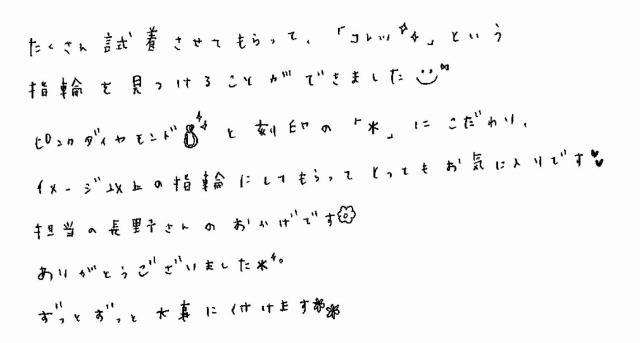 たくさん試着させてもらって、「コレッ!!」という
指輪を見つけることができました
ピンクダイヤモンドと刻印の「*」にこだわり、
イメージ以上の指輪にしてもらってとってもお気に入りです
担当の長野さんのおかげです
ありがとうございました*。
ずっとずっと大事に付けます